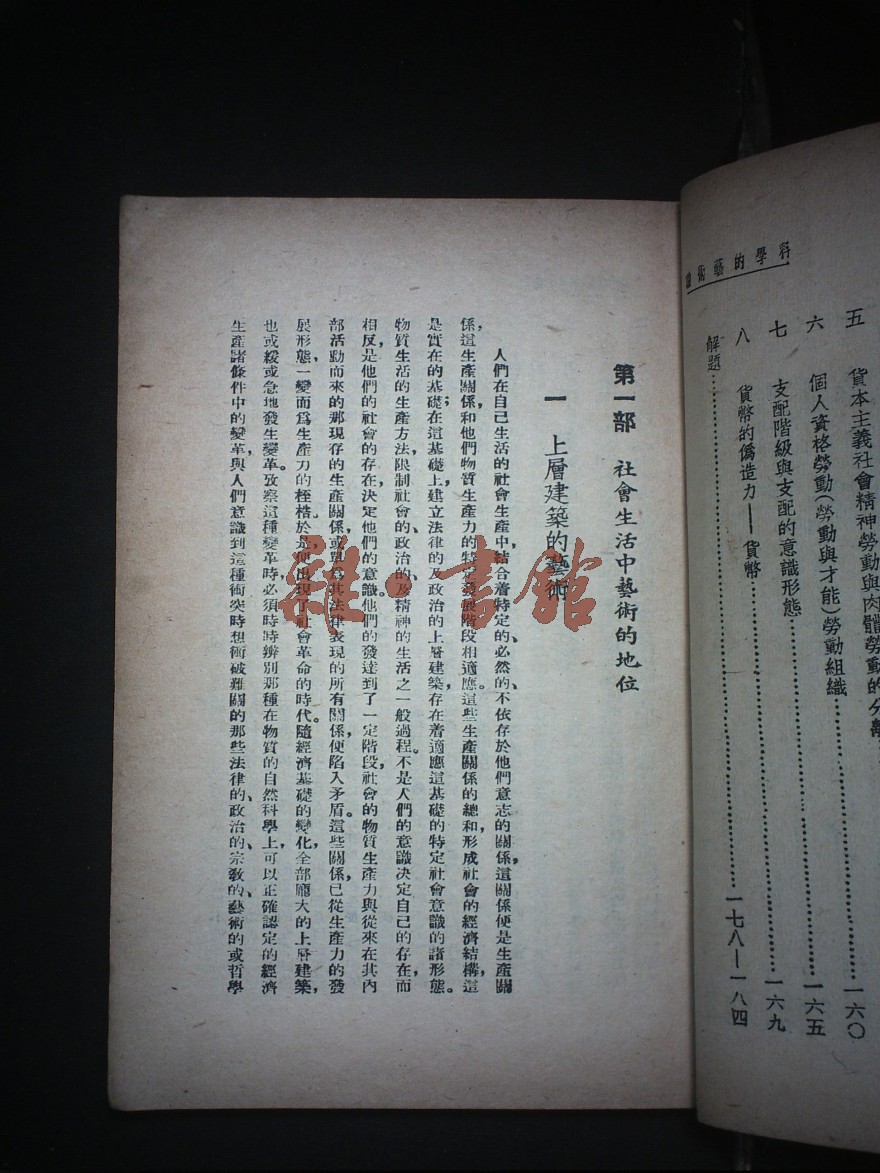 科學的藝術論
五　貨本主義社會精神勞動與肉體勞動的分離……一六〇
六　個人資格勞動(勞動與才能)勞動組織……一六五
七　支配階級與支配的意識形態……一六九
八　貨幣的僞造力——貨幣
解題……一七八—一八四
第一部　社會生活中藝術的地位
一　上層建築的藝術
人們在自己生活的社會生產中，結合着特定的、必然的、不依存於他們意志的關係，這關係便是生產關
係，這生產關係，和他們物質生產力的特定發展階段相適應。這些生產關係的總和，形成社會的經濟結構，這
是實在的基礎；在這基礎上，建立法律的及政治的上層建築，存在着適應這基礎的特定社會意識的諸形態。
物質生活的生產方法，限制社會的、政治的、及精神的生活之一般過程。不是人們的意識決定自己的存在，而
相反，是他們的社會的存在，決定他們的意識。他們的發達到了一定階段，社會的物質生產力與從來在其內
部活動而來的那現存的生產關係，或單爲其法律表現的所有關係，便陷入矛盾。這些關係，已從生產力的發
展形態，一變而爲生產力的桎梏。於是便出現了社會革命的時代。隨經濟基礎的變化，全部龐大的上層建築，
也或緩或急地發生變革。攷察這種變革時，必須時時辨別那種在物質的自然科學上，可以正確認定的經濟
生產諸條件中的變革，與人們意識到這種衝突時想衝破難關的那些法律的、政治的、宗教的、藝術的或哲學
雜·書館